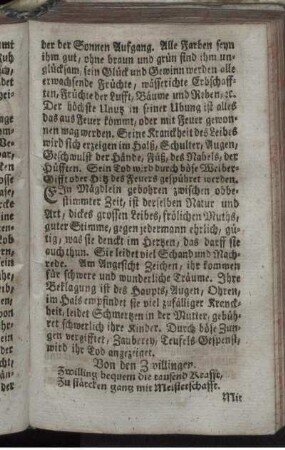 der der Sonnen Aufgang. Alle Farben seyn
ihm gut, ohne braun und grün sind ihm un-
glücksam, sein Glück und Gewinn werden alle
erwachsende Früchte, wässerichte Erbschaff-
ten, Früchte der Lufft, Bäume und Reben, ꝛc.
Der höchste Nutz in seiner Ubung ist alles
das aus Feuer kommt, oder mit Feuer gewon-
nen mag werden. Seine Kranckheit des Leibes
wird sich erzeigen im Halß, Schulter, Augen,
Geschwulst der Hände, Füß, des Nabels, der
Hüfften. Sein Tod wird durch böse Weiber
Gifft oder Hitz des Feuers gespühret werden.
Ein Mägdlein gebohren zwischen obbe-
stimmter Zeit, ist derselben Natur und
Art, dickes grossen Leibes, frölichen Muths,
guter Stimme, gegen jedermann ehrlich, gü-
tig, was sie denckt im Hertzen, das darff sie
auch thun. Sie leidet viel Schand und Nach-
rede. Am Angesicht Zeichen, ihr kommen
für schwere und wunderliche Träume. Ihre
Beklagung ist des Haupts, Augen, Ohren,
im Hals empfindet sie viel zufälliger Kranck-
heit, leidet Schmertzen in der Mutter, gebüh-
ret schwerlich ihre Kinder. Durch böse Zun-
gen vergifftet, Zauberey, Teufels Gespenst,
wird ihr Tod angezeiget.
Von den Zwillingen.
Zwilling bequem die tausend Krafft,
Zu stärcken gantz mit Meisterschafft.
Mit